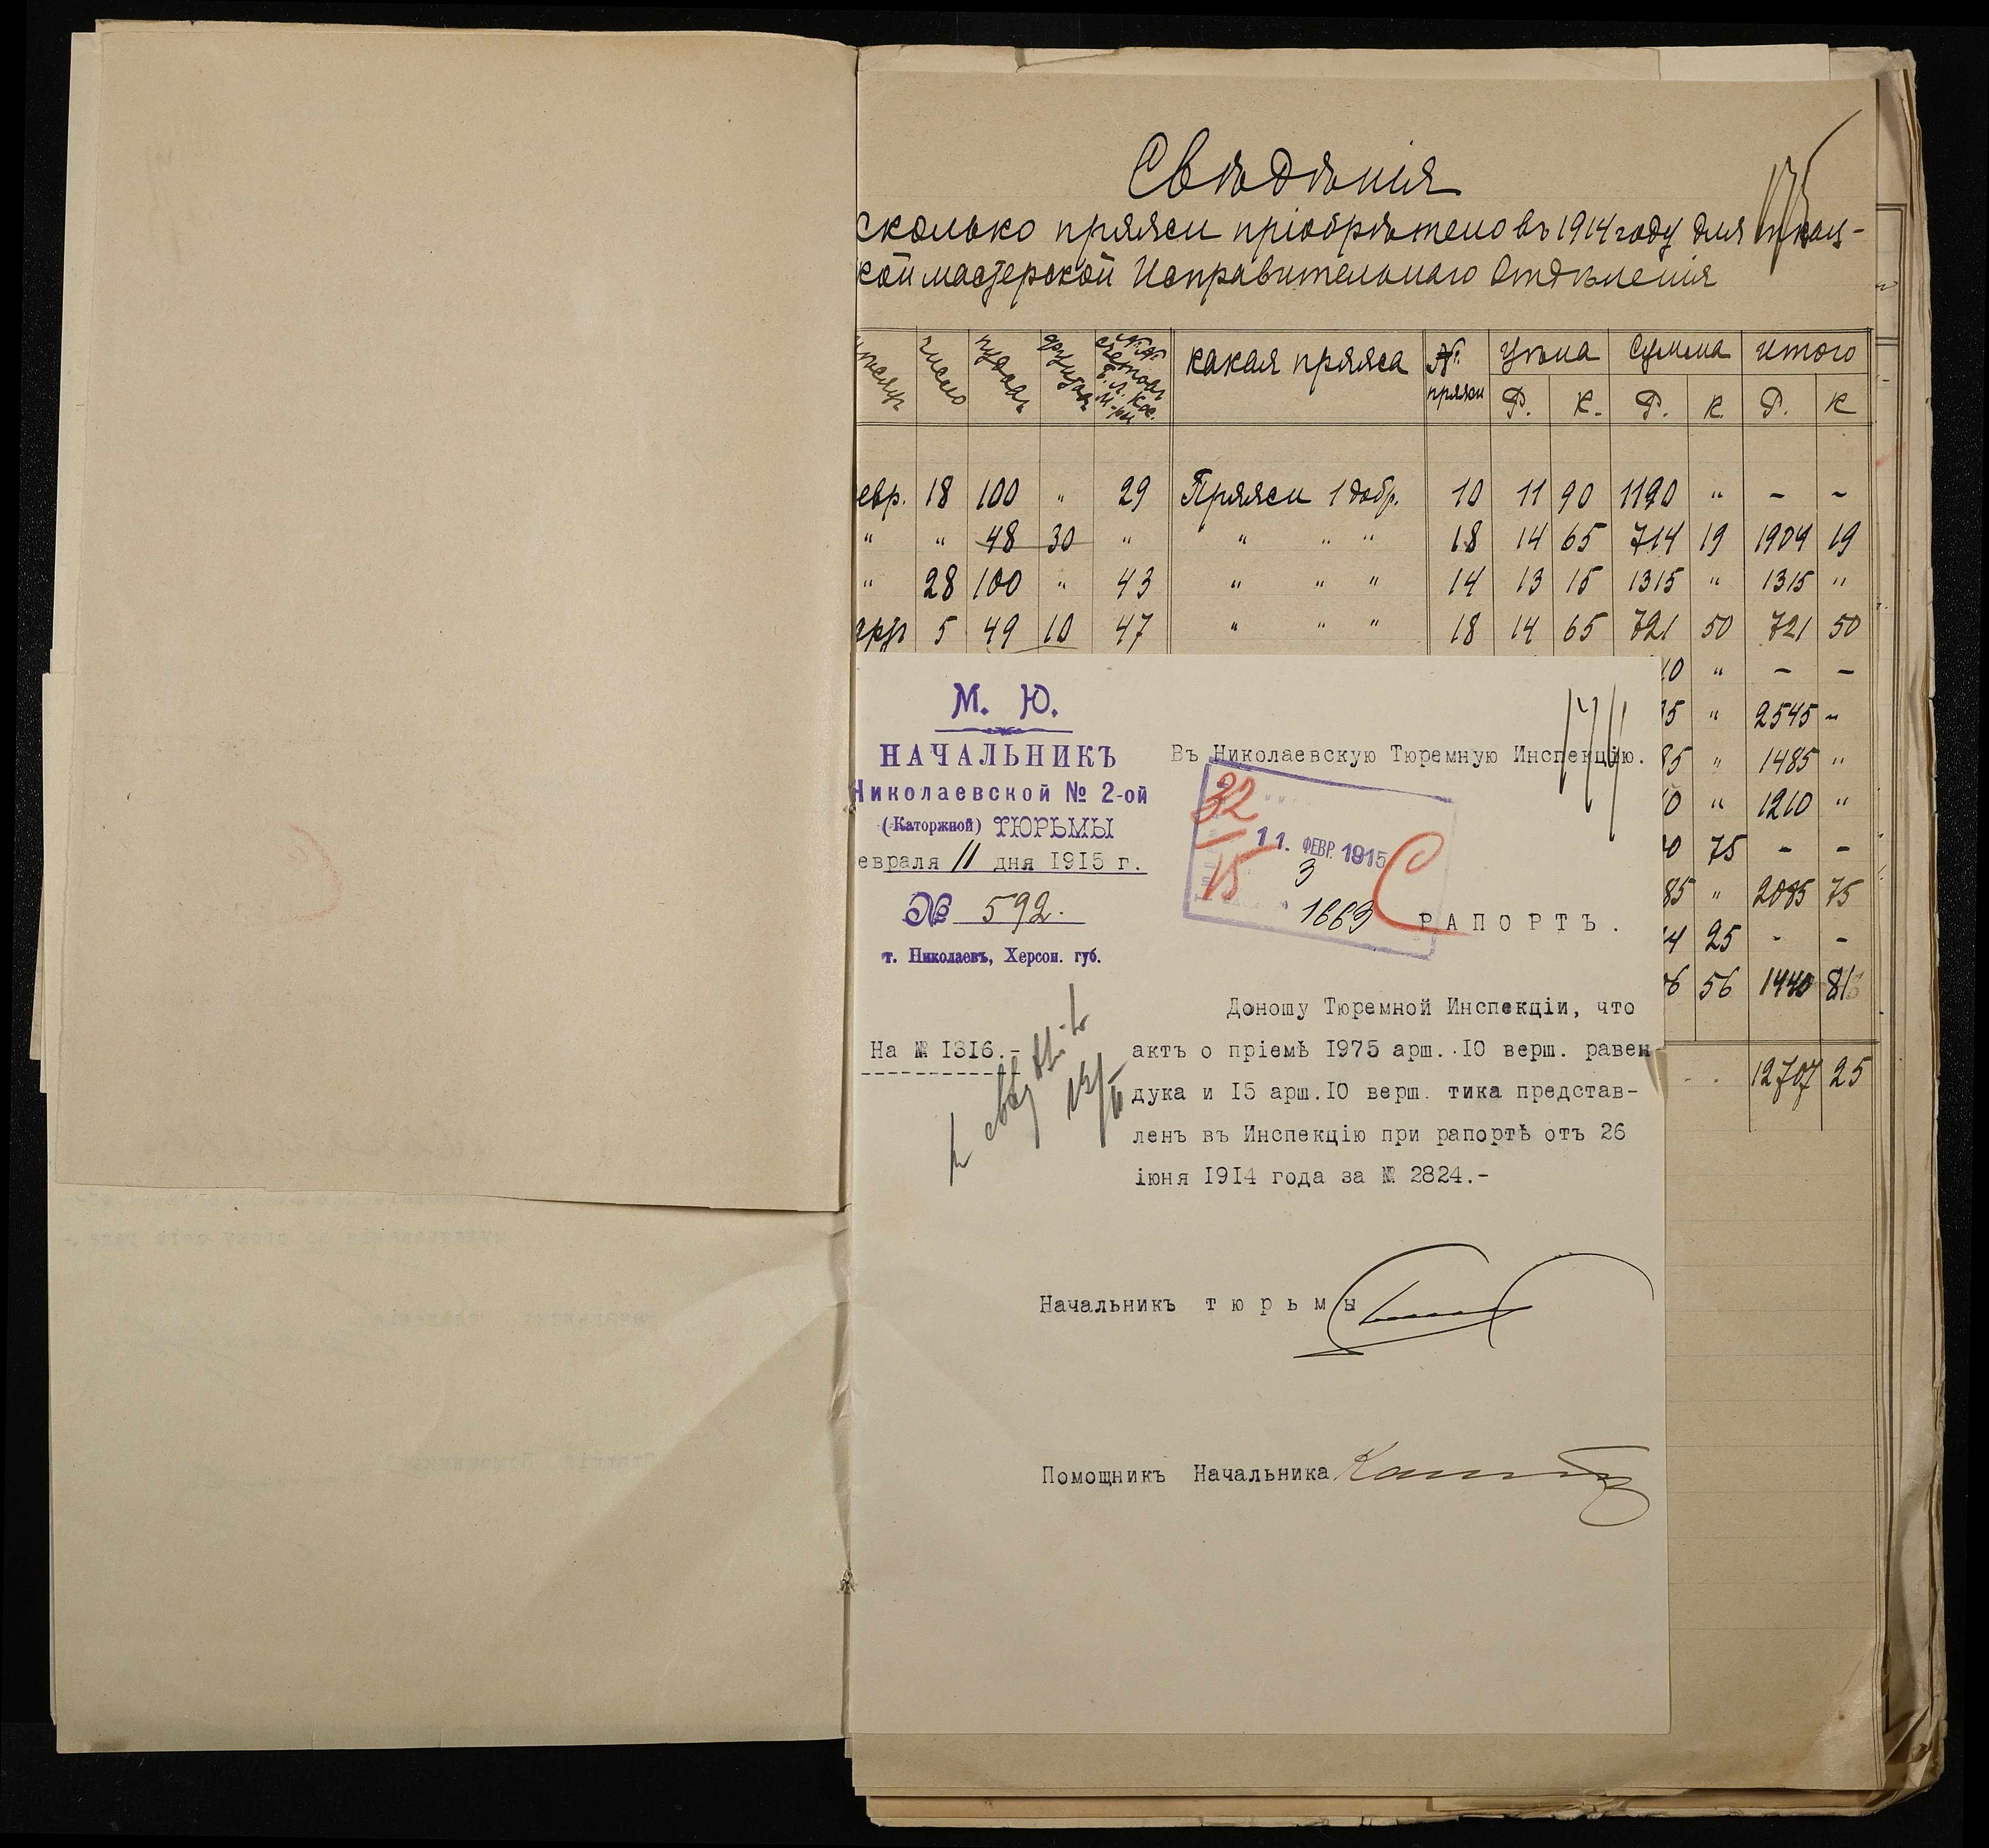 Свѣдѣнія
175
сколько пряжи пріобрѣтено въ 1914 году для ткац-
кой мастерской Исправительнаго Отдѣленія
мѣсяцъ число пудовъ фунтовъ №№ счетовъ какая пряжа №. пряжи Цѣна Сумма итого
Р. К. Р. К. Р. К
евр. 18 100 " 29 Пряжи 1 добр. 10 11 90 1190 " - -
" " 48 30 " " " " 18 14 65 714 19 1904 19
" 28 100 " 43 " " " 14 13 15 1315 " 1315 "
5 49 10 47 " " " 18 14 65 721 50 721 50
10 " - -
" 2545 -
85 " 1485 "
10 " 1210 "
75 - -
85 " 2085 75
25 - -
56 1440 81
12707 25
М. Ю.
174
НАЧАЛЬНИКЪ
Николаевской № 2-ой
(Каторжной) ТЮРЬМЫ
евраля 11 дня 1915 г.
№ 592.
г. Николаевъ, Херсон. губ.
Въ Николаевскую Тюремную Инспекцію.
32
15
11. ФЕВР. 1915
3
1663
РАПОРТЪ.
На № 1316.-
Доношу Тюремной Инспекціи, что
актъ о пріемѣ 1975 арш. 10 верш. равен
дука и 15 арш.10 верш. тика представ-
ленъ въ Инспекцію при рапортѣ отъ 26
іюня 1914 года за № 2824.-
Начальникъ тюрьмы
Помощникъ Начальника